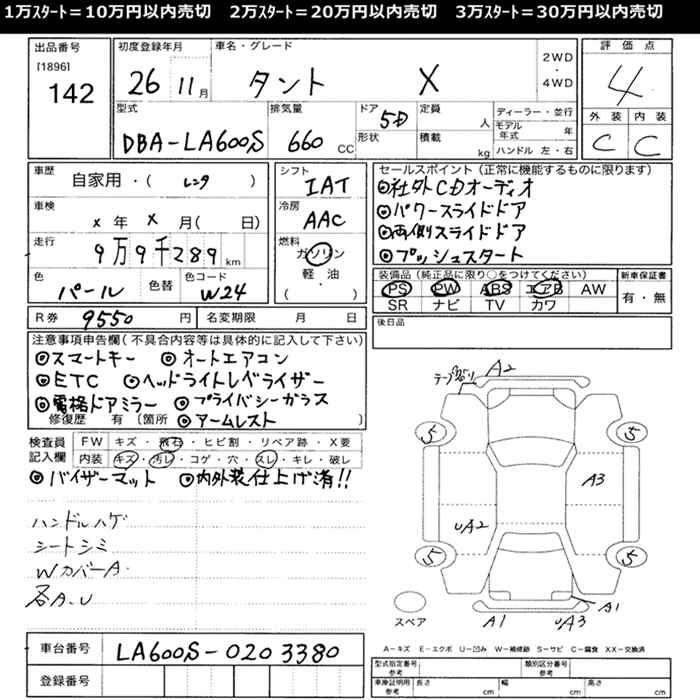 1万ｽﾀｰﾄ＝10万円以内売切　2万ｽﾀｰﾄ＝20万円以内売切　3万ｽﾀｰﾄ＝30万円以内売切
出品番号
[1896]
142
初度登録年月
26 11月
車名・グレード
タント X
2WD
・
4WD
評価点
4
外装 内装
C C
型式
DBA-LA600S
排気量
660 CC
ドア
5D
形状
定員
人
積載
kg
ディーラー・並行
モデル年式 年
ハンドル 左・右
車歴
自家用・( レンタ )
車検
x 年 x 月( 日)
走行
9万9千289 km
色
パール
色替
色コード
W24
シフト
IAT
冷房
AAC
燃料
ガソリン
軽・油
( )
セールスポイント (正常に機能するものに限ります)
◎社外CDオーディオ
◎パワースライドドア
◎両側スライドドア
◎プッシュスタート
装備品 (純正品に限り○をつけてください)
PS PW ABS エアB AW
SR ナビ TV カワ
新車保証書
有・無
R券 9550 円
名変期限 月 日
後日品
注意事項申告欄(不具合内容等は具体的に記入して下さい)
◎スマートキー ◎オートエアコン
◎ETC ◎ヘッドライトレベライザー
◎電格ドアミラー ◎プライバシーガラス
修復歴 有 〔箇所 ◎アームレスト 〕
検査員記入欄
FW キズ・飛石・ヒビ割・リペア跡・X要
内装 キズ・汚レ・コゲ・穴・スレ・キレ・破レ
◎バイザーマット ◎内外装仕上げ済!!
ハンドルハゲ
シートシミ
WカバーA.
各A.U
A2
5 5
A3
UA2
5 5
スペア
A1 UA3 A1
A－キズ E－エクボ U－凹み W－補修跡 S－サビ C－腐食 XX－交換済
車台番号
LA600S-0203380
登録番号
型式指定番号 参考
類別区分番号 参考
車庫証明用 参考
長さ cm
幅 cm
高さ cm